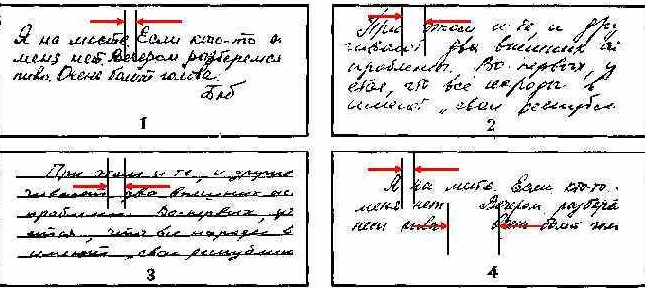 Я на месте. Если кто-то
меня нет. Вечером разберемся
пиво. Очень болит голова.
Боб
1
При этом и те и дру
два внешних
проблемы. Во-первых, у
что все народы в
имеют „свои республи
2
При этом и те, и другие
два внешних
проблемы. Во-первых,
что все народы в
имеют „свои республики
3
Я на месте. Если кто-то
меня нет. Вечером разбере
пиво болит
4